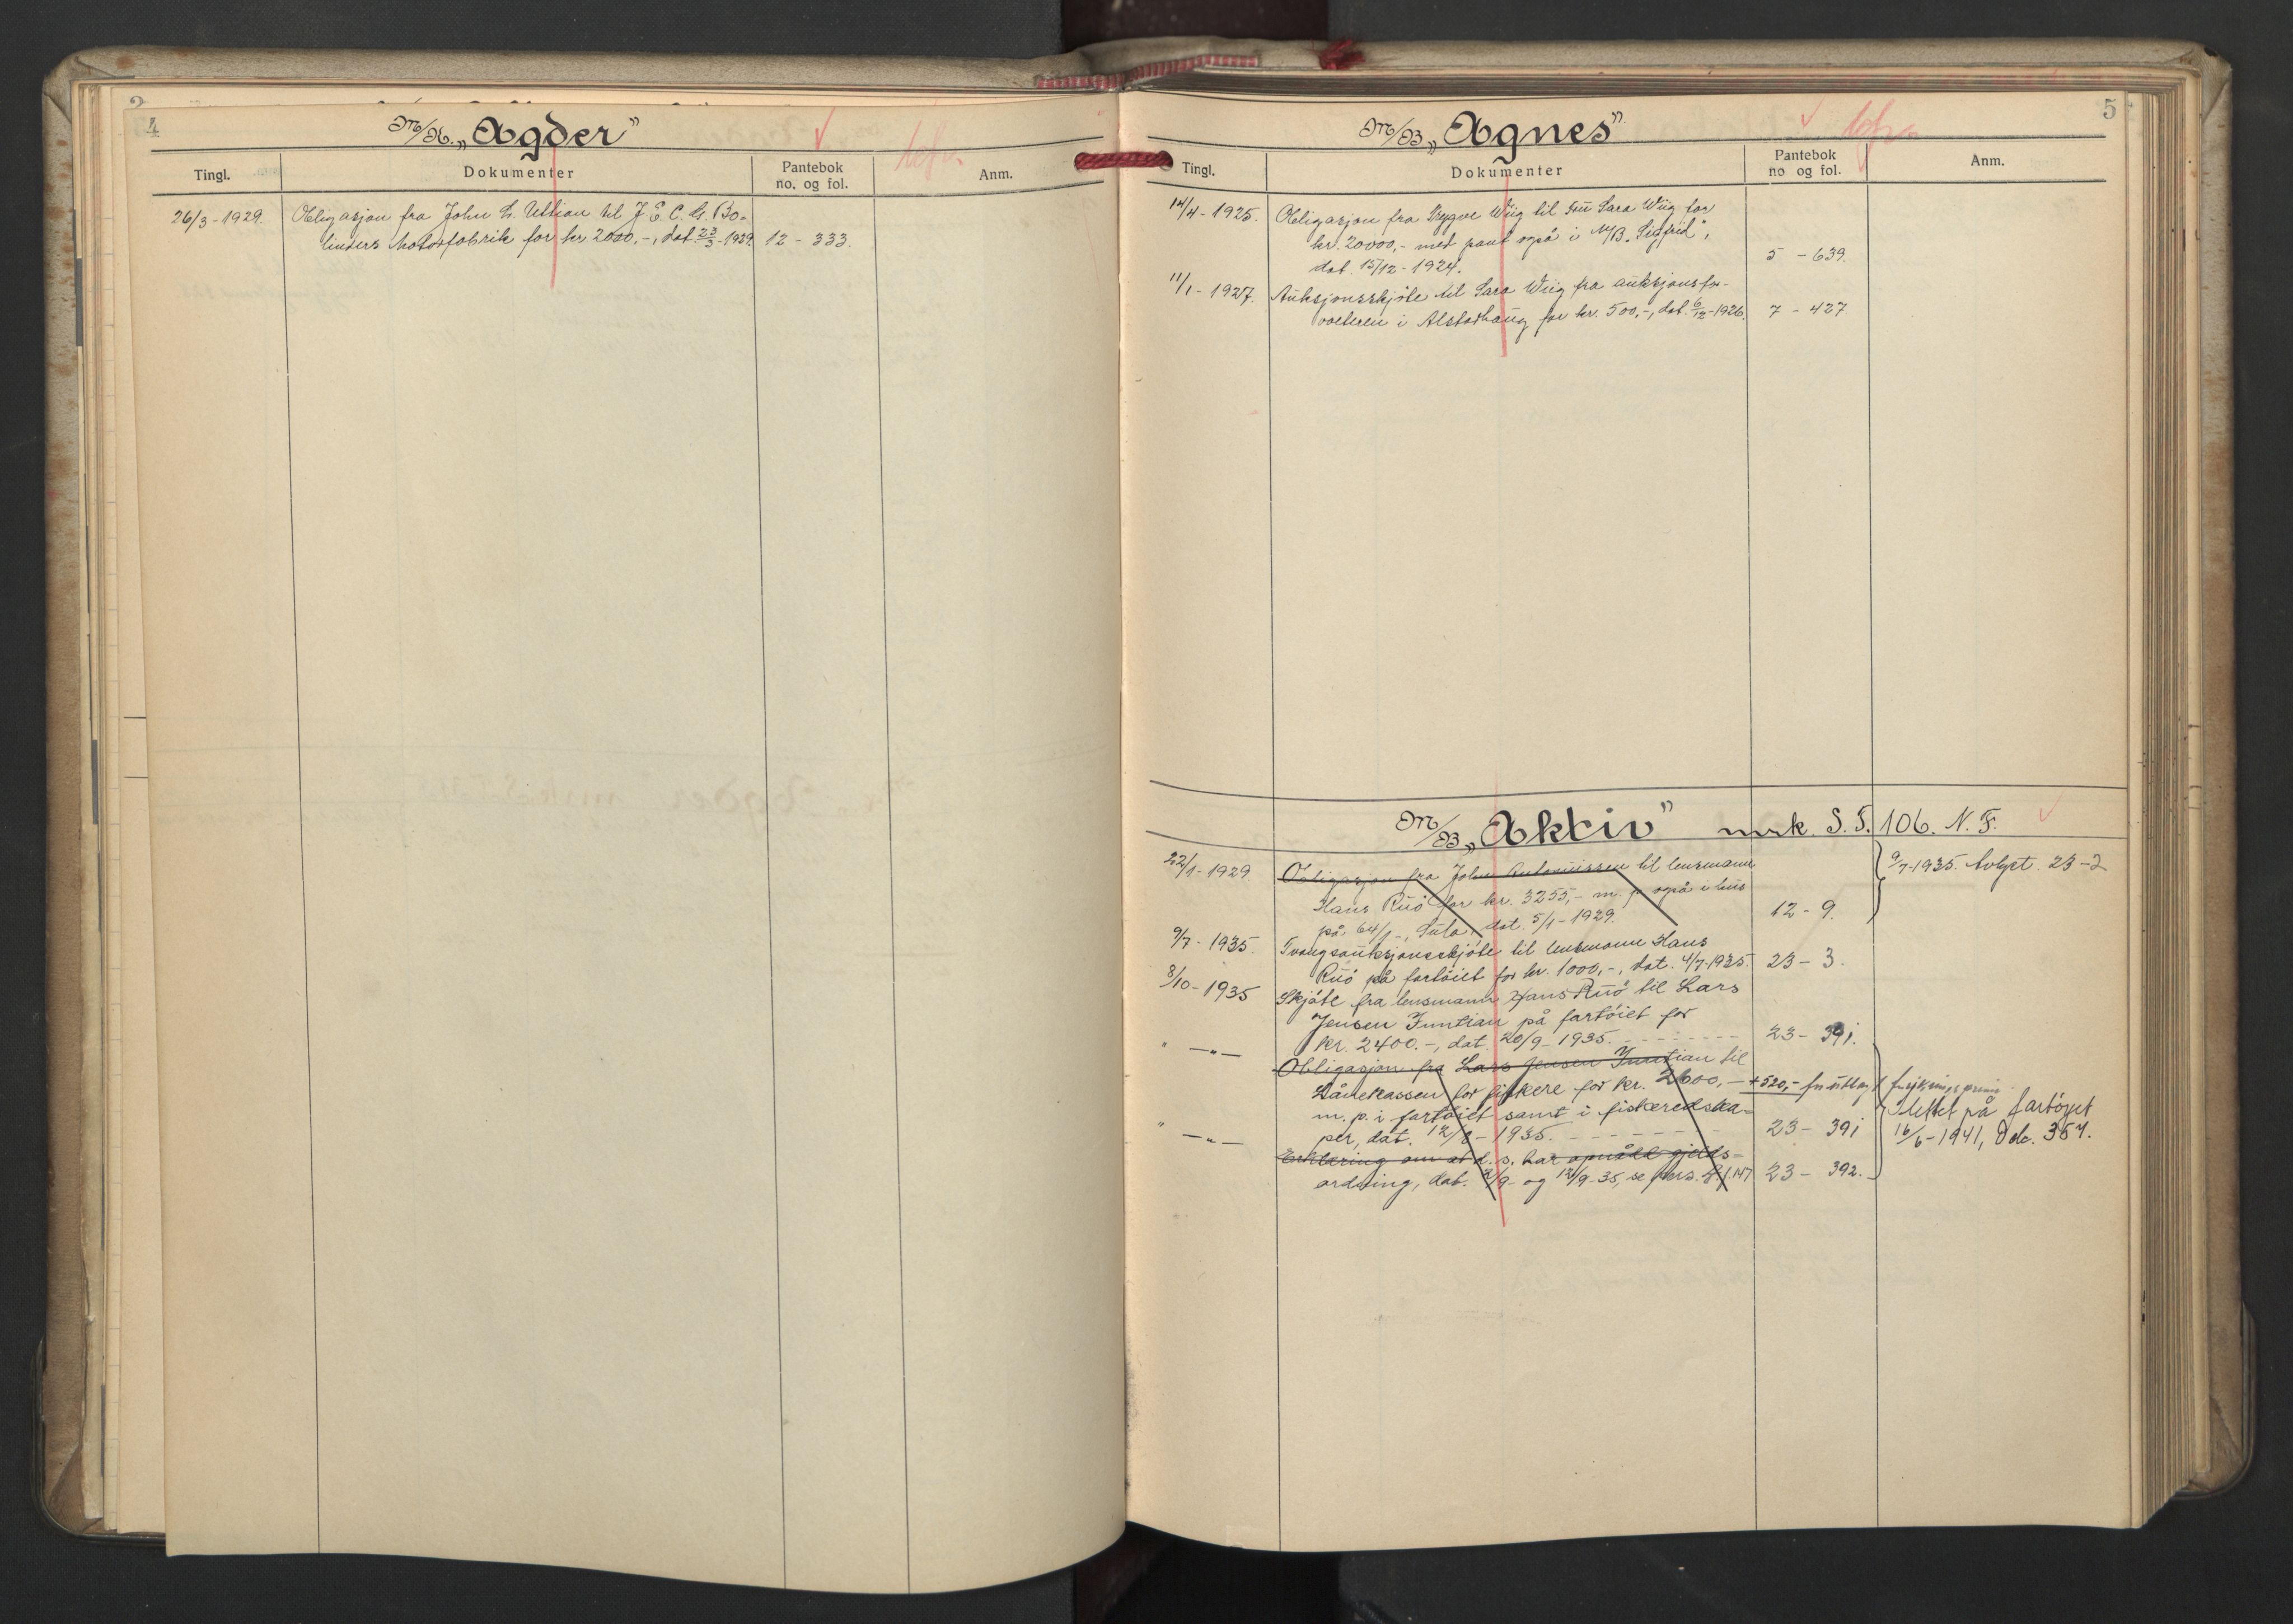 4
M/K. „Agder”
Tingl.
Dokumenter
Pantebok
no. og fol.
Anm.
26/3-1929.
Obligasjon fra John L. til J. & C. G. Bo-
linders Motorfabrik for kr. 2000,-, dat. 23/3-1929.
12 - 333.
5
M/B „Agnes”
Tingl.
Dokumenter
Pantebok
no og fol.
Anm.
14/4-1925.
Obligasjon fra Trygve Wiig til fru Sara Wiig for
kr. 20000,- med pant også i M/B. „Sigfrid”,
dat. 15/12-1924.
5 - 639.
11/1-1927.
Auksjonsskjöte til Sara Wiig fra auksjonsfor-
valteren i Alstadhaug for kr. 500,-, dat. 6/12-1926.
7 - 427
M/B „Aktiv” mrk. S. T. 106. N. F.
22/1-1929.
Obligasjon fra John Antoniussen til lensmann
Hans Riiö for kr. 3255,- m. p. også i hus
på 64/1-, Sula, dat. 5/1-1929.
12 - 9.
9/7-1935. Avlyst. 23-2
9/7-1935.
Tvangsauksjonsskjöte til lensmann Hans
Riiö på fartöiet for kr. 1000,-, dat. 4/7-1935.
23 - 3.
8/10-1935
Skjöte fra lensmann Hans Riiö til Lars
Jensen på fartöiet for
kr. 2400.-, dat. 20/9-1935.
23 - 391.
" —"—
Obligasjon fra Lars Jensen til
Lånekassen for fiskere for kr. 2600,- +520,- for utlagt
m. p. i fartöiet samt i fiskeredska-
per, dat. 12/8-1935.
23 - 391
Slettet på fartöyet
16/6-1941, Dok. 357.
" —"—
Erklæring om at d. s. har opnådd gjelds-
ordning, dat. og 12/9-35, se pers.
23 - 392.